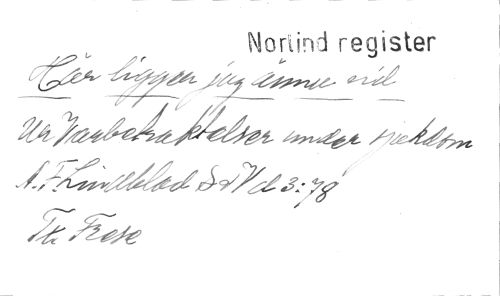 Norlind register
Här ligger jag ännu vid
Ur Vårbetraktelser under sjukdom
A. F. Lindblad S o V d 3:78
Th. Frese